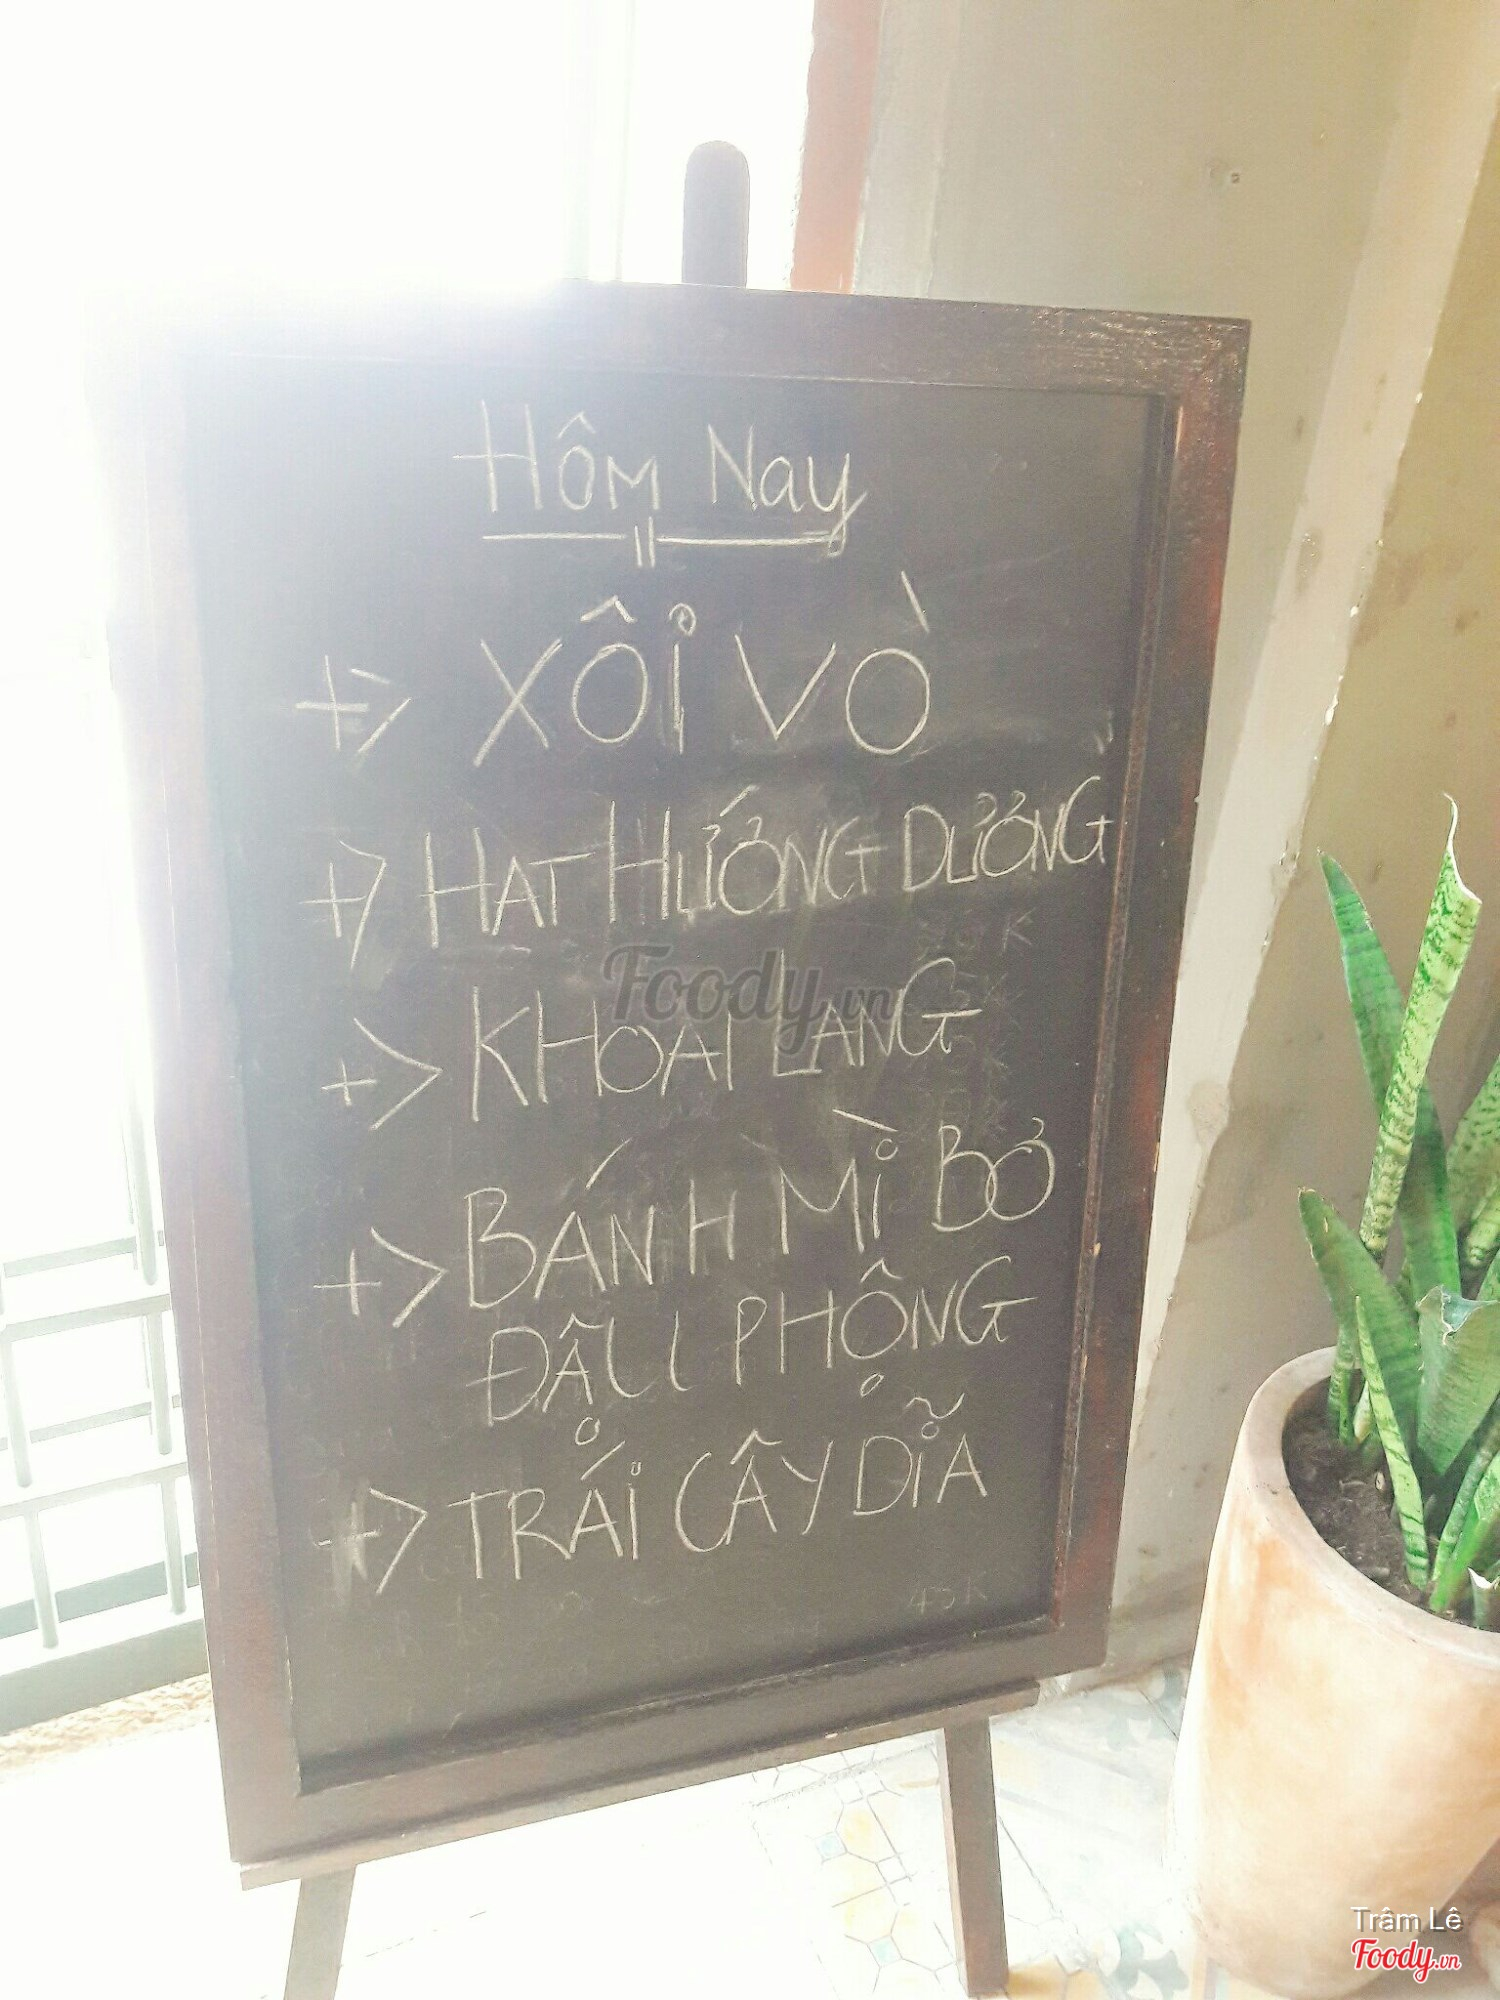 Hôm Nay
+> XÔI VÒ
+> HẠT HƯỚNG DƯƠNG
+> KHOAI LANG
+> BÁNH MÌ BƠ
ĐẬU PHỘNG
+> TRÁI CÂY DĨA
45K
Foody.vn
Trâm Lê
Foody.vn